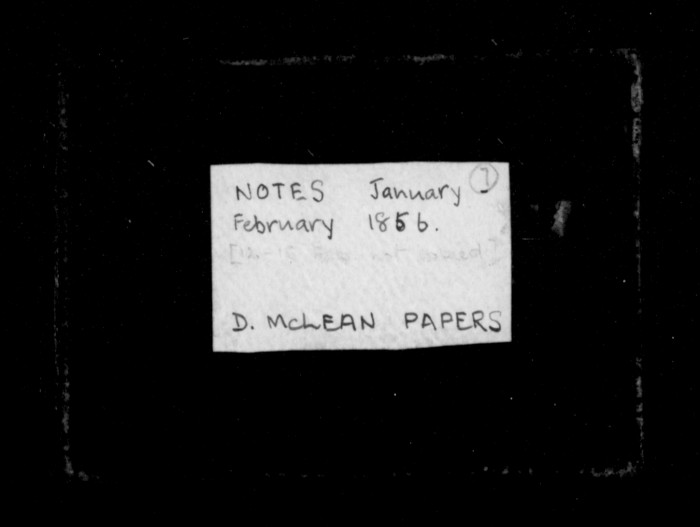 NOTES January 7
February 1856.
[12-15 Feb not copied]
D. McLEAN PAPERS